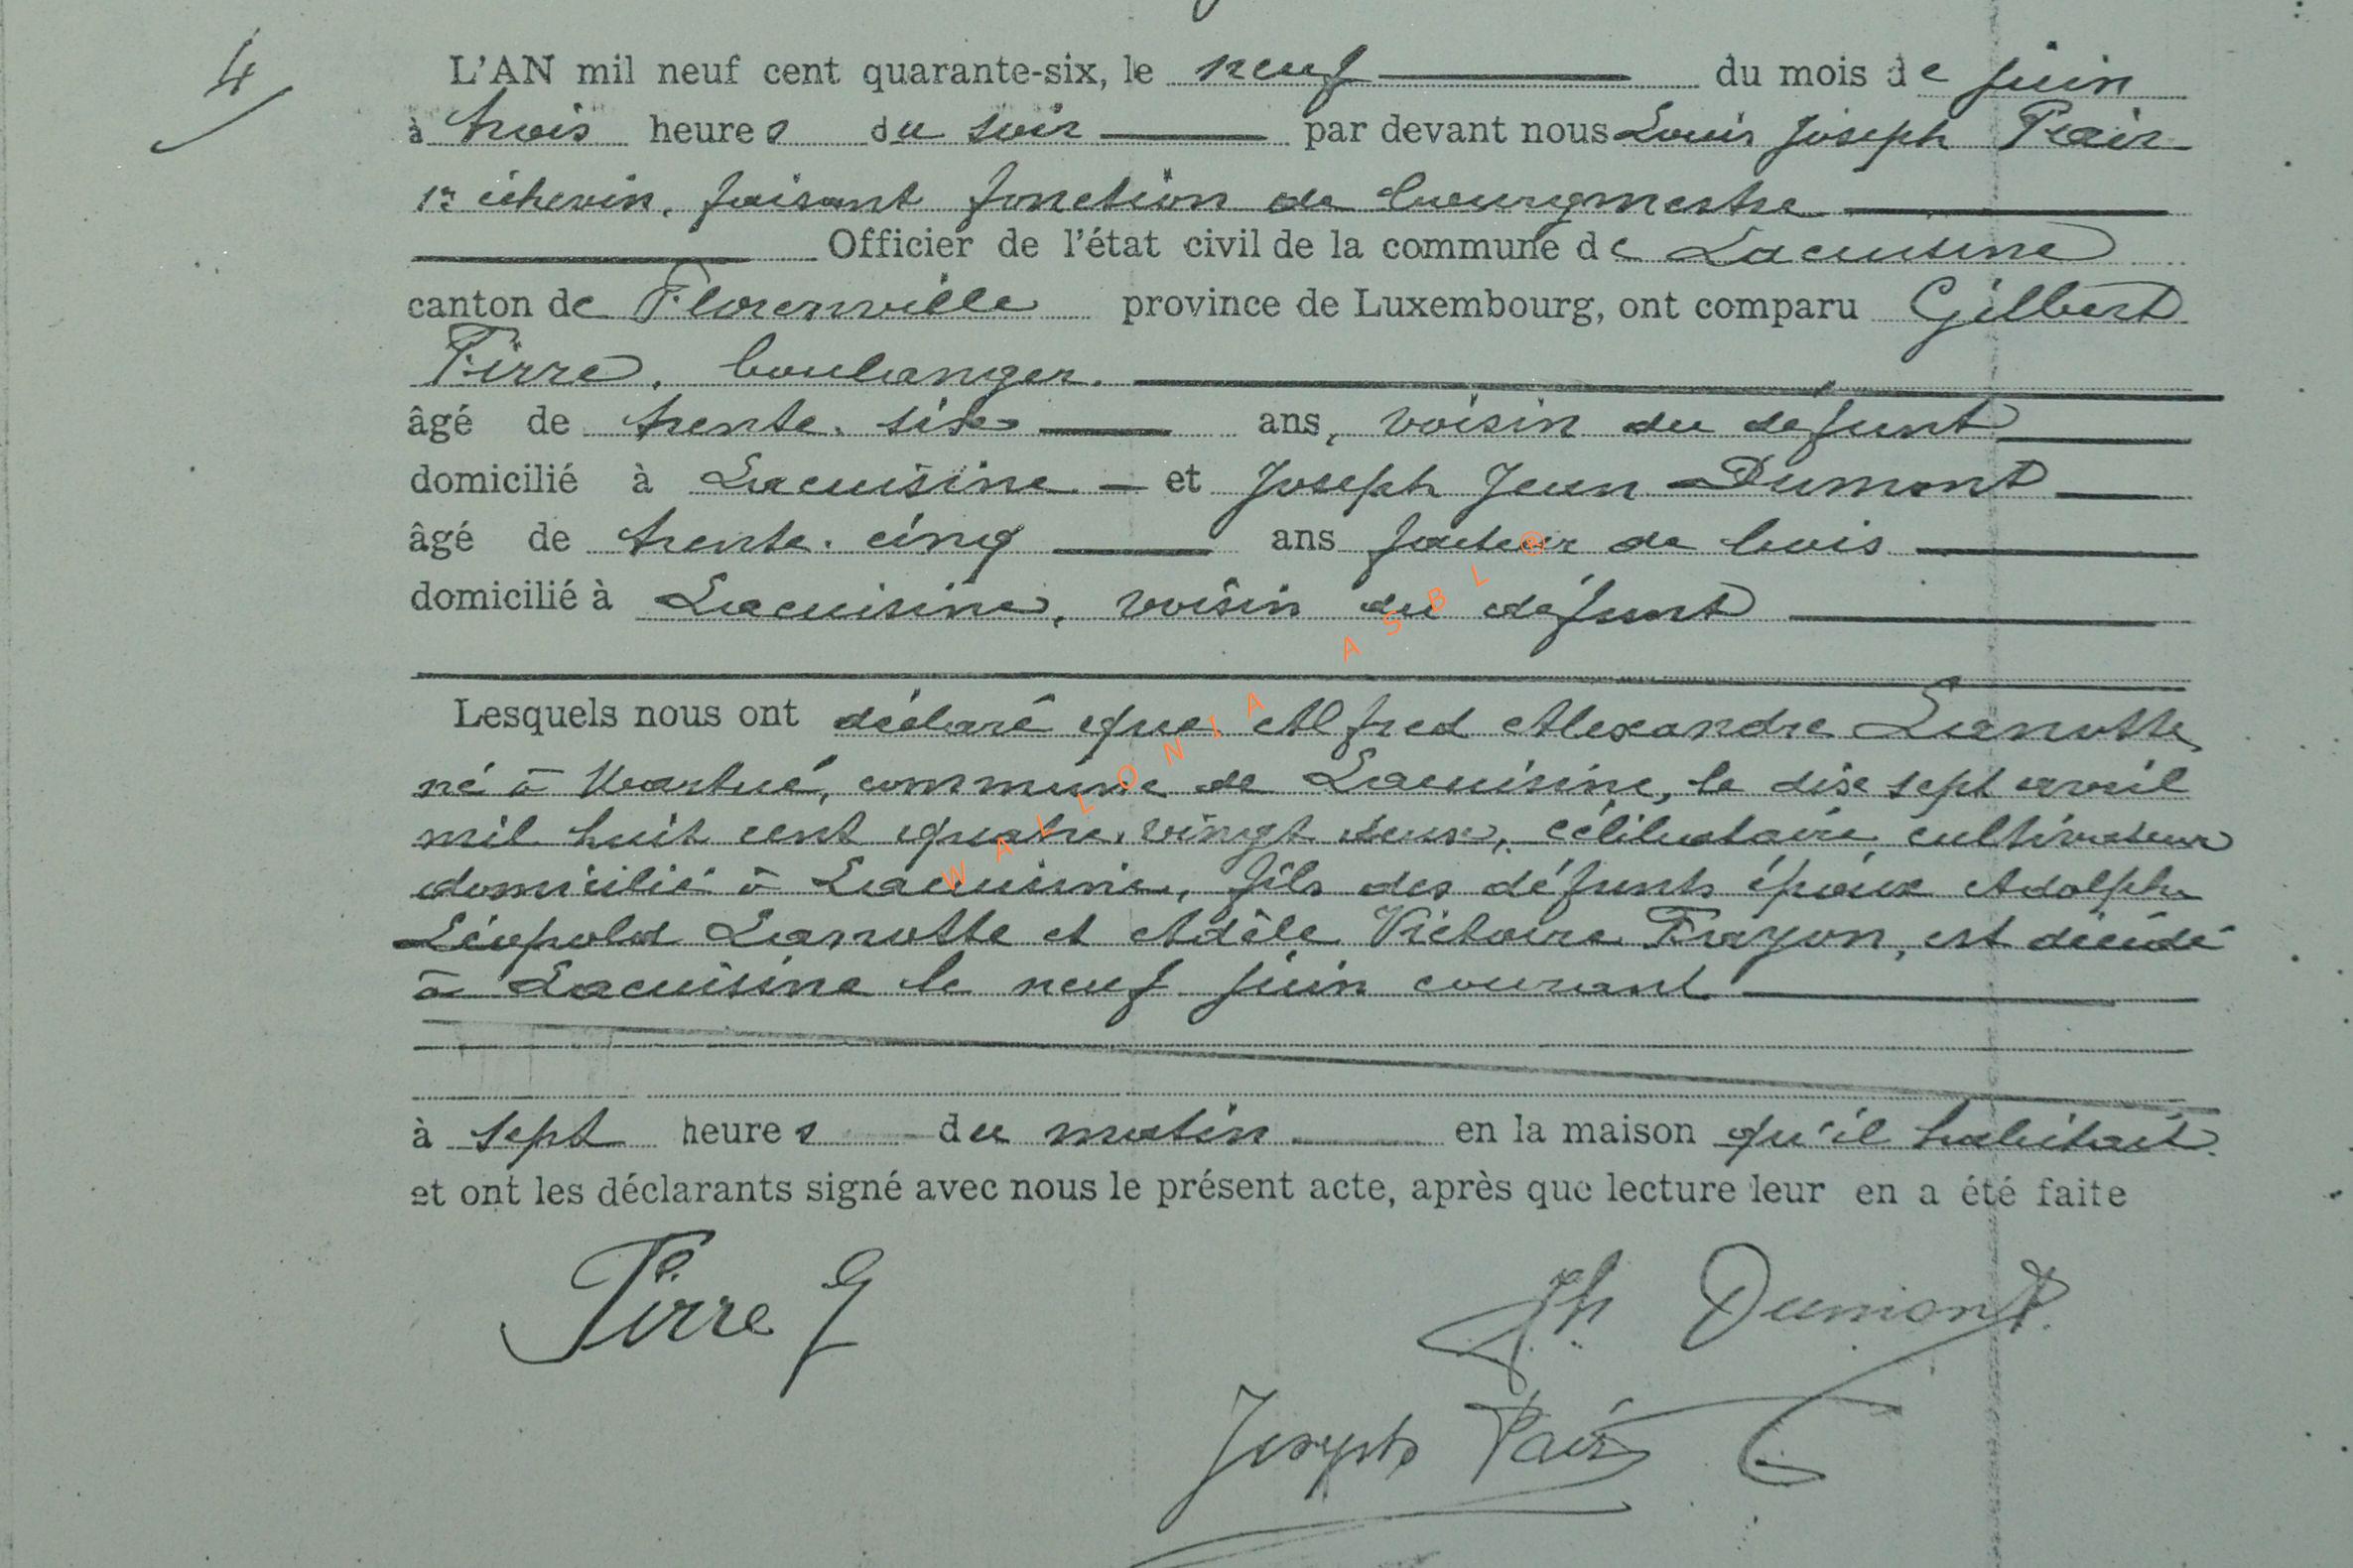 4
L'AN mil neuf cent quarante-six, le neuf du mois de juin
à trois heures du soir par devant nous Louis Joseph Pair
1r échevin, faisant fonction de bourgmestre
Officier de l'état civil de la commune de Lacuisine
canton de Florenville province de Luxembourg, ont comparu Gilbert
Pirre, boulanger.
âgé de trente-six ans, voisin du défunt
domicilié à Lacuisine - et Joseph Jean Dumont
âgé de trente-cinq ans facteur de bois
domicilié à Lacuisine, voisin du défunt
Lesquels nous ont déclaré que Alfred Alexandre Lanotte
né à Martué, commune de Lacuisine, le dix sept avril
mil huit cent quatre-vingt deux, célibataire cultivateur
domicilié à Lacuisine, fils des défunts époux Adolphe
Léopold Lanotte et Adèle Victoire Frayon, est décédé
à Lacuisine le neuf juin courant
à sept heures du matin en la maison qu'il habitait.
et ont les déclarants signé avec nous le présent acte, après que lecture leur en a été faite
Pirre G
Jh Dumont
Joseph Pair
WALLONIA ASBL ®